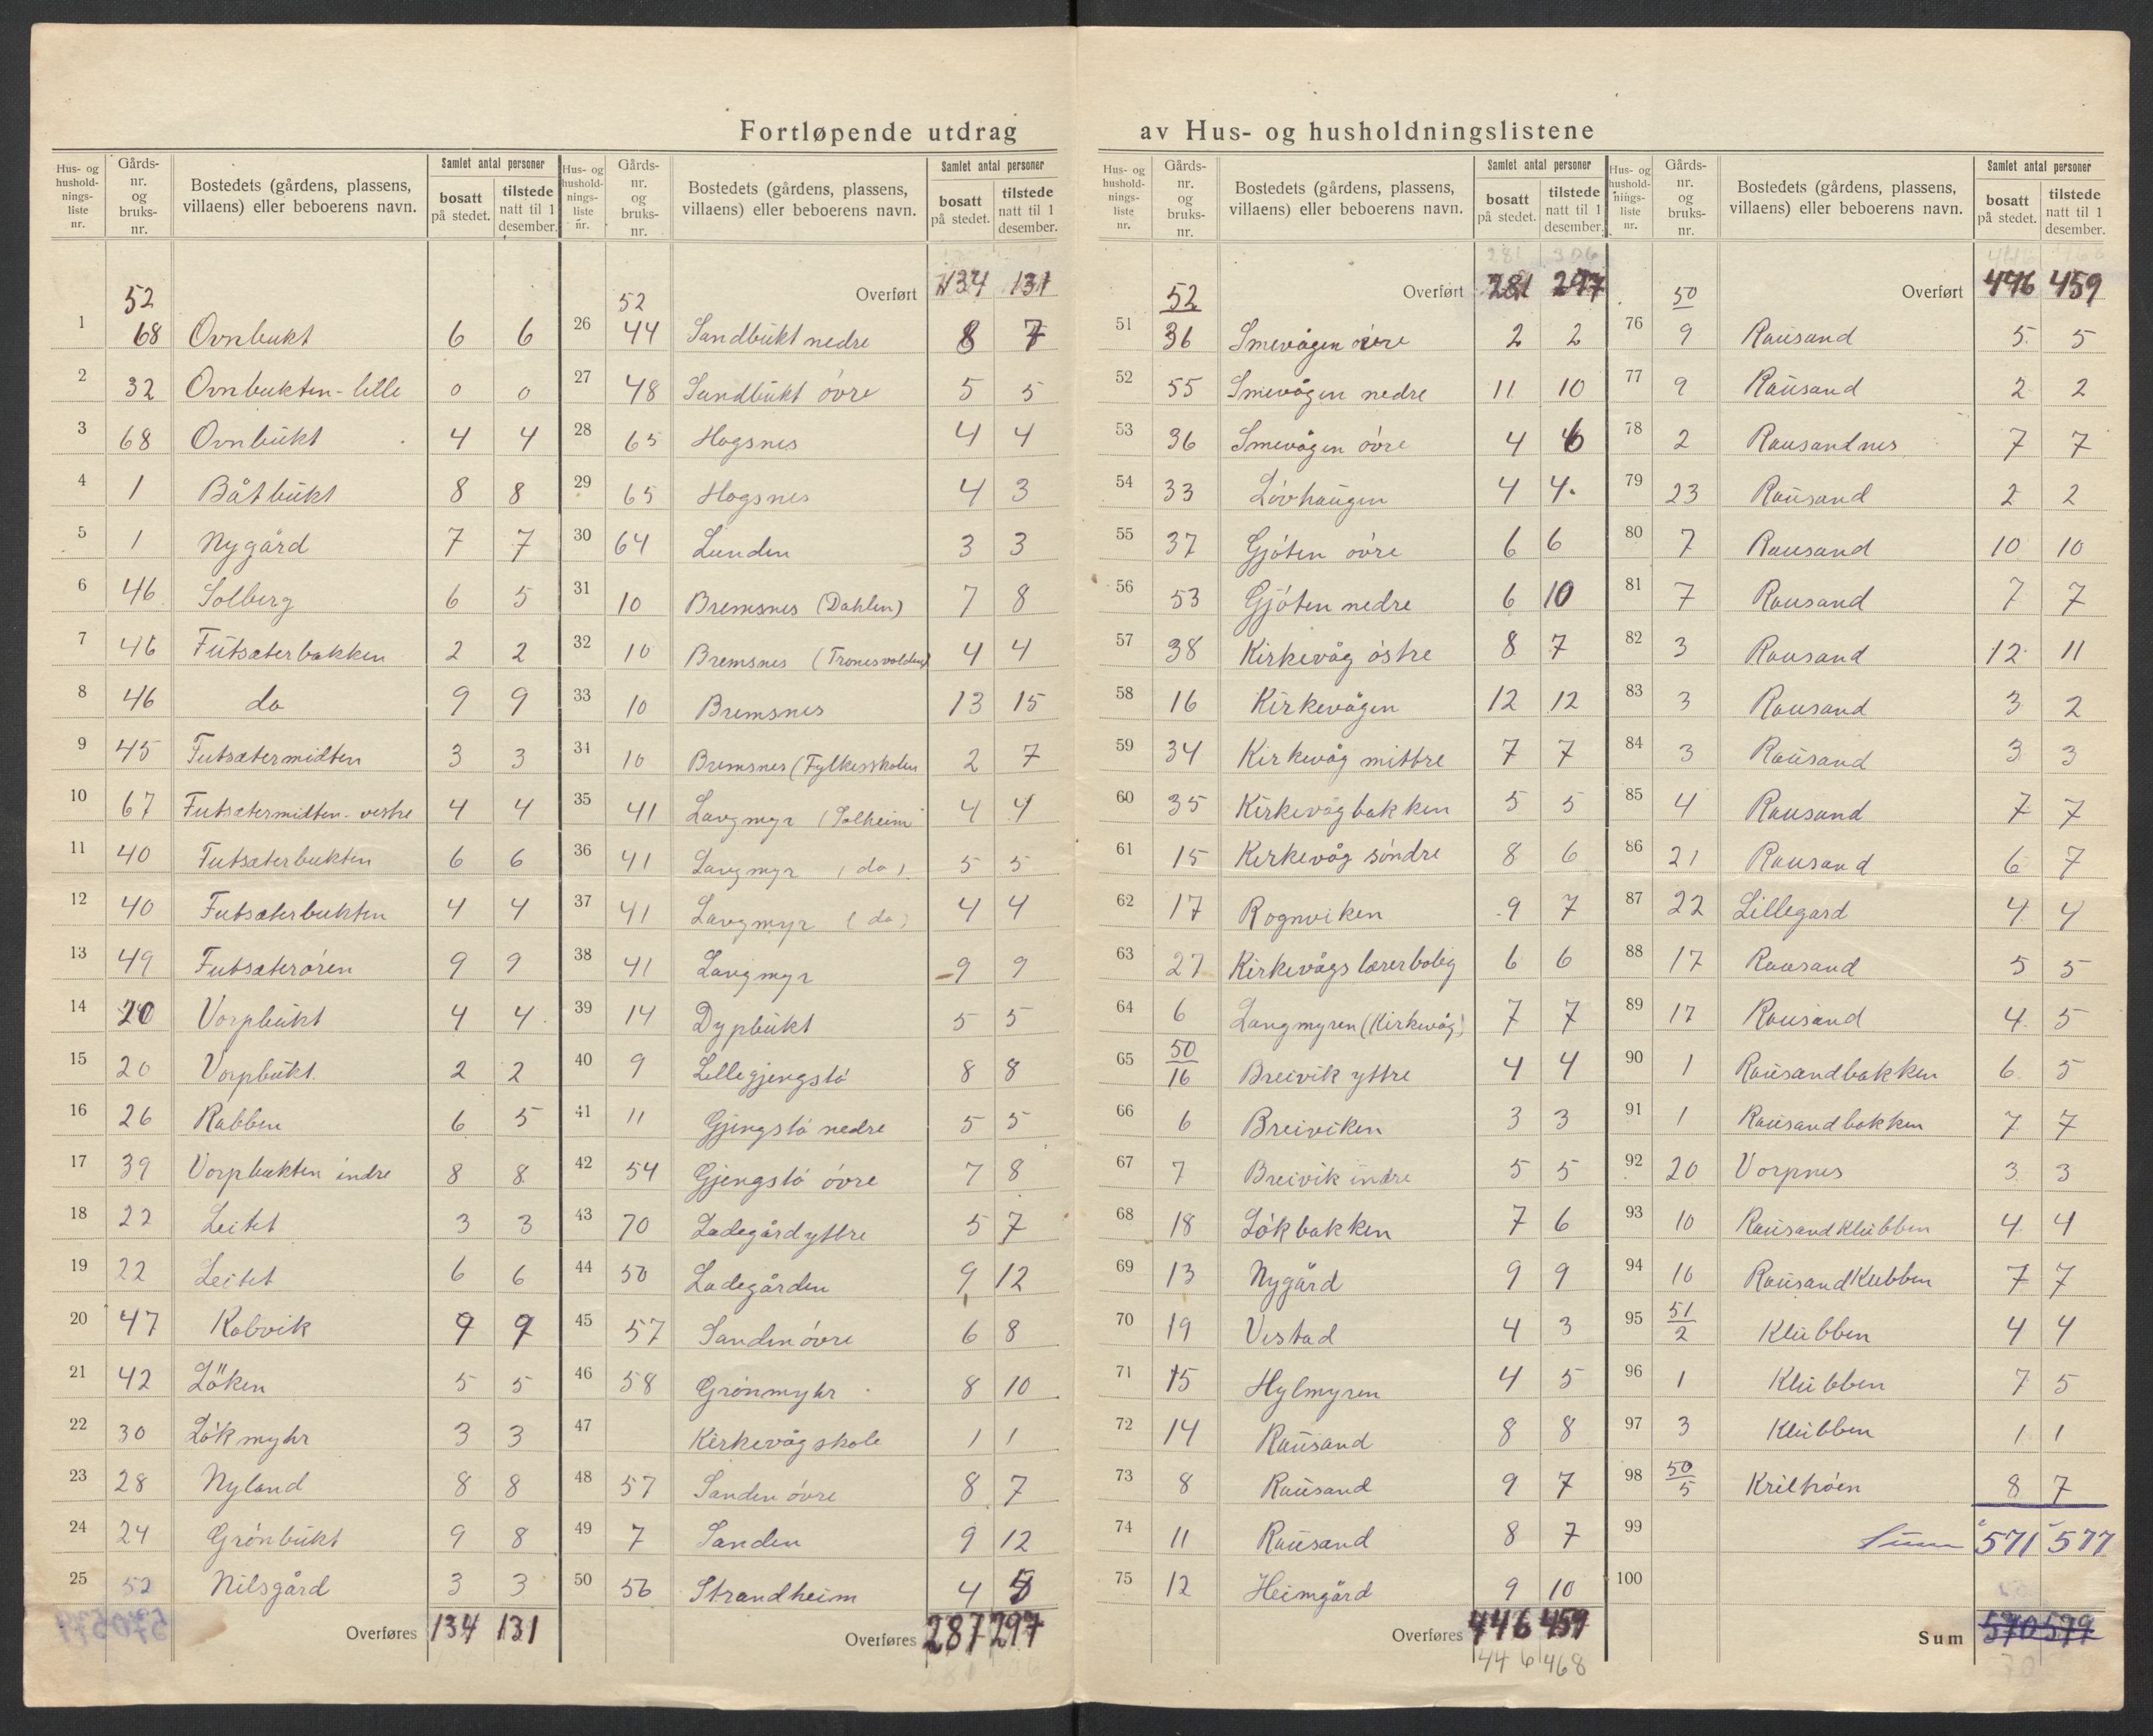 Fortløpende utdrag av Hus- og husholdningslistene
Hus- og hushold- nings- liste nr. | Gårds- nr. og bruks- nr. | Bostedets (gårdens, plassens, villaens) eller beboerens navn. | Samlet antal personer | bosatt på stedet. | tilstede natt til 1 desember.
52
1 68 Ovnbukt 6 6
2 32 Ovnbukten-lille 0 0
3 68 Ovnbukt 4 4
4 1 Båtbukt 8 8
5 1 Nygård 7 7
6 46 Solberg 6 5
7 46 Futsæterbakken 2 2
8 46 do 9 9
9 45 Futsætermidten 3 3
10 67 Futsætermidten-vestre 4 4
11 40 Futsæterbukten 6 6
12 40 Futsæterbukten 4 4
13 49 Futsæterøren 9 9
14 20 Vorpbukt 4 4
15 20 Vorpbukt 2 2
16 26 Rabben 6 5
17 39 Vorpbukten indre 8 8
18 22 Leitet 3 3
19 22 Leitet 6 6
20 47 Kobvik 9 9
21 42 Löken 5 5
22 30 Lökmyhr 3 3
23 28 Nyland 8 8
24 24 Grönbukt 9 8
25 52 Nilsgård 3 3
Overføres 134 131
Hus- og hushold- nings- liste nr. | Gårds- nr. og bruks- nr. | Bostedets (gårdens, plassens, villaens) eller beboerens navn. | Samlet antal personer | bosatt på stedet. | tilstede natt til 1 desember.
Overført 134 131
52
26 44 Sandbukt nedre 8 7
27 48 Sandbukt övre 5 5
28 65 Hogsnes 4 4
29 65 Hogsnes 4 3
30 64 Lunden 3 3
31 10 Bremsnes (Dahlen) 7 8
32 10 Bremsnes (Tronesvolden) 4 4
33 10 Bremsnes 13 15
34 10 Bremsnes (Fylkesskolen 2 7
35 41 Langmyr (Solheim 4 4
36 41 Langmyr (do) 5 5
37 41 Langmyr (do) 4 4
38 41 Langmyr 9 9
39 14 Dypbukt 5 5
40 9 Lillegjengstö 8 8
41 11 Gjengstö nedre 5 5
42 54 Gjengstö övre 7 8
43 70 Ladegård yttre 5 7
44 50 Ladegården 9 12
45 57 Sanden övre 6 8
46 58 Grönmyhr 8 10
47 Kirkevåg skole 1 1
48 57 Sanden övre 8 7
49 7 Sanden 9 12
50 56 Strandheim 4
Overføres 287 297
Hus- og hushold- nings- liste nr. | Gårds- nr. og bruks- nr. | Bostedets (gårdens, plassens, villaens) eller beboerens navn. | Samlet antal personer | bosatt på stedet. | tilstede natt til 1 desember.
281 306
Overført 281 297
52
51 36 Smevågen övre 2 2
52 55 Smevågen nedre 11 10
53 36 Smevågen övre 4 6
54 33 Lövhaugen 4 4
55 37 Gjöten övre 6 6
56 53 Gjöten nedre 6 10
57 38 Kirkevåg östre 8 7
58 16 Kirkevågen 12 12
59 34 Kirkevåg mittre 7 7
60 35 Kirkevågbakken 5 5
61 15 Kirkevåg söndre 8 6
62 17 Rognviken 9 7
63 27 Kirkevågs lærerbolig 6 6
64 6 Langmyren (Kirkevåg) 7 7
65 50/16 Breivik yttre 4 4
66 6 Breiviken 3 3
67 7 Breivik indre 5 5
68 18 Lökbakken 7 6
69 13 Nygård 9 9
70 19 Vestad 4 3
71 15 Hylmyren 4 5
72 14 Rausand 8 8
73 8 Rausand 9 7
74 11 Rausand 8 7
75 12 Heimgård 9 10
Overføres 446 459
446 468
Hus- og hushold- nings- liste nr. | Gårds- nr. og bruks- nr. | Bostedets (gårdens, plassens, villaens) eller beboerens navn. | Samlet antal personer | bosatt på stedet. | tilstede natt til 1 desember.
Overført 446 459
50
76 9 Rausand 5 5
77 9 Rausand 2 2
78 2 Rausandnes 7 7
79 23 Rausand 2 2
80 7 Rausand 10 10
81 7 Rausand 7 7
82 3 Rausand 12 11
83 3 Rausand 3 2
84 3 Rausand 3 3
85 4 Rausand 7 7
86 21 Rausand 6 7
87 22 Lillegard 4 4
88 17 Rausand 5 5
89 17 Rausand 4 5
90 1 Rausandbakken 6 5
91 1 Rausandbakken 7 7
92 20 Vorpnes 3 3
93 10 Rausandklubben 4 4
94 10 Rausandklubben 7 7
95 51/2 Klubben 4 4
96 1 Klubben 7 5
97 3 Klubben 1 1
98 50/5 8 7
99 Sum 571 577
100
Sum 570 579